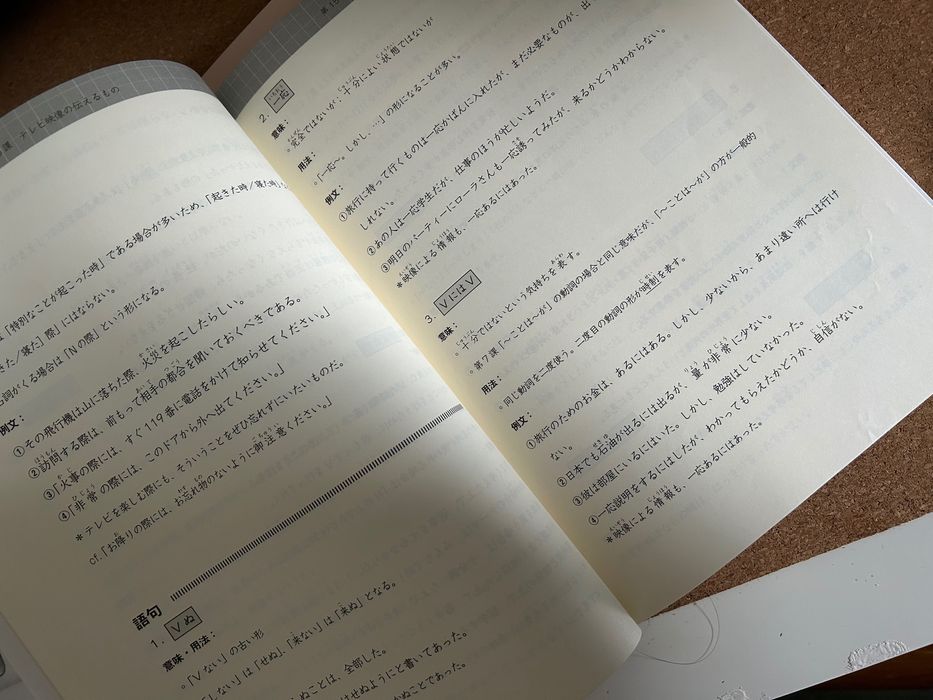 課 テレビ映像の伝えるもの
「特別なことが起こった時」である場合が多いため、「起きた時/寝た時」
きた/寝た」際」にはならない。
名詞がくる場合は「Nの際」という形になる。
例文:
①その飛行機は山に落ちた際、火災を起こしたらしい。
②訪問する際は、前もって相手の都合を聞いておくべきである。
③「火事の際には、すぐ119番に電話をかけて知らせてください。」
④「非常の際には、このドアから外へ出てください。」
*テレビを楽しむ際にも、そういうことをぜひ忘れずにいたいものだ。
cf.「お降りの際には、お忘れ物のないように御注意ください。」
語句
1. Vぬ
意味・用法:
。「Vない」の古い形
「しない」は「せぬ」、「来ない」は「来ぬ」となる。
ぬことは、全部した。
はせぬようにと書いてあった。
ぬことであった。
第15
2. 一応
意味:
。完全ではないが;十分によい状態ではないが
用法:
。「一応〜。しかし、…」の形になることが多い。
例文:
①旅行に持って行くものは一応かばんに入れたが、まだ必要なものが、出
しれない。
②あの人は一応学生だが、仕事のほうが忙しいようだ。
③明日のパーティーにローラさんも一応誘ってみたが、来るかどうかわからない。
*映像による情報も、一応あるにはあった。
3. VにはV
意味:
。十分ではないという気持ちを表す。
。第7課「〜ことは〜が」の動詞の場合と同じ意味だが、「〜ことは〜が」の方が一般的
用法:
。同じ動詞を二度使う。二度目の動詞の形が時制を表す。
例文:
①旅行のためのお金は、あるにはある。しかし、少ないから、あまり遠い所へは行け
ない。
②日本でも石油が出るには出るが、量が非常に少ない。
③彼は部屋にいるにはいた。しかし、勉強はしていなかった。
④一応説明をするにはしたが、わかってもらえたかどうか、自信がない。
*映像による情報も、一応あるにはあった。